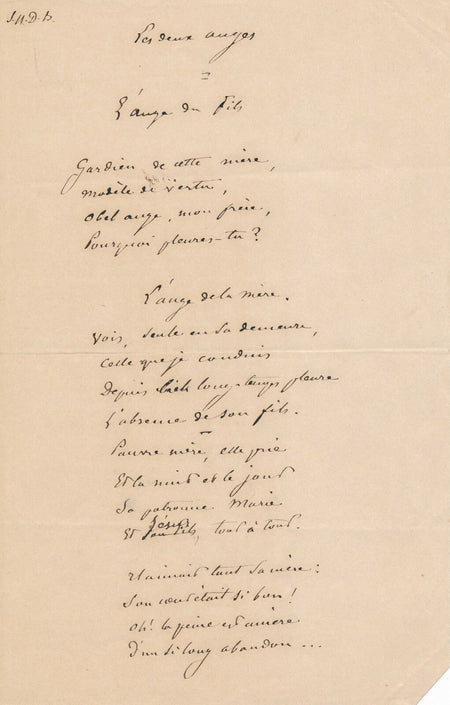 J.M.D.B.
Les deux anges
=
L'ange du fils
Gardien de cette mère,
Modèle de vertu,
O bel ange, mon frère,
Pourquoi pleures-tu?
L'ange de la mère.
Vois, seule en sa demeure,
Celle que je conduis
Depuis bien long-temps pleure
L'absence de son fils.
Pauvre mère, elle prie
Et la nuit et le jour
Sa patronne Marie
Et Jésus, tour à tour.
Il aimait tant sa mère:
Son cœur était si bon!
Oh! la peine est amère
D'un si long abandon...